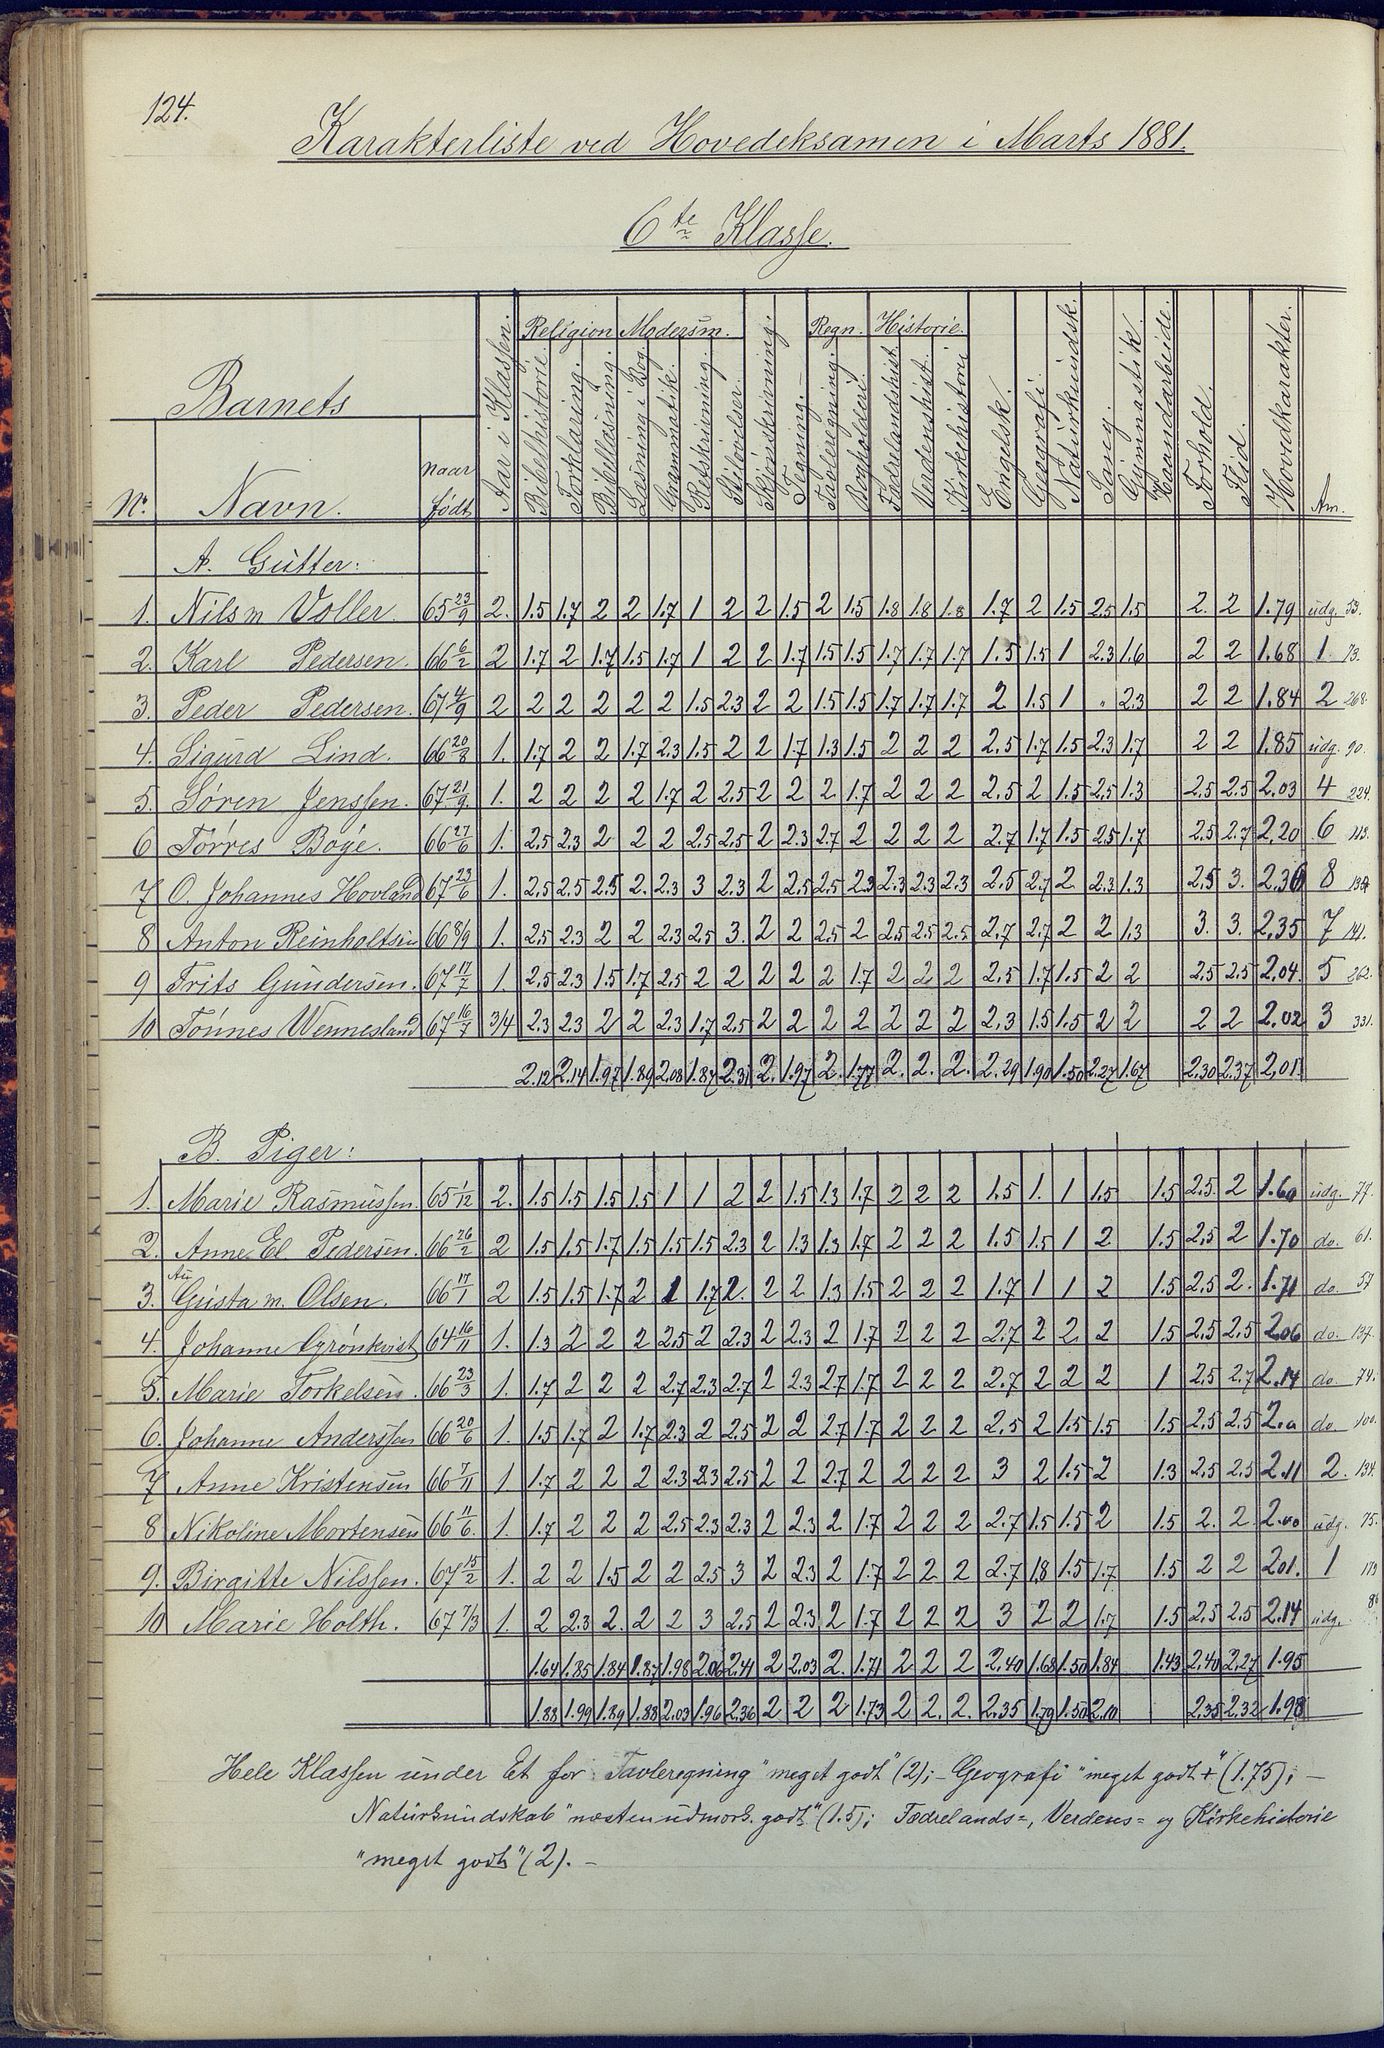 124.
Karakterliste ved Hovedeksamen i Marts 1881.
6te Klasse.
Barnets
No. Navn. naar født Aar i Klassen. Religion Bibelhistorie. Forklaring. Bibellæsning. Modersm. Læsning i Bog. Grammatik. Retskrivning. Stiløvelser. Skjönskrivning. Tegning. Regn. Tavleregning. Bogholderi. Historie. Fædrelandshist. Verdenshist. Kirkehistorie Engelsk. Geografi. Naturkundsk. Sang. Gymnastik. Haandarbeide. Forhold. Flid. Hovedkarakter. Am.
A. Gutter:
1. Nils m Voller. 65 23/9 2. 1.5 1.7 2 2 1.7 1 2 2 1.5 2 1.5 1.8 1.8 1.8 1.7 2 1.5 2.5 1.5 2. 2 1.79 udg. 53.
2. Karl Pedersen. 66 6/2 2 1.7 2 1.7 1.5 1.7 1 2 2 1.7 1.5 1.5 1.7 1.7 1.7 1.5 1.5 1 2.3 1.6 2 2 1.68 1 73.
3. Peder Pedersen. 67 4/9 2 2 2 2 2 2 1.5 2.3 2 2 1.5 1.5 1.7 1.7 1.7 2 1.5 1 " 2.3 2 2 1.84 2 268.
4. Sigurd Lind. 66 20/8 1. 1.7 2 2 1.7 2.3 1.5 2 2 1.7 1.3 1.5 2 2 2 2.5 1.7 1.5 2.3 1.7 2 2 1.85 udg. 90.
5. Søren Jenssen. 67 21/9. 1. 2 2 2 2 1.7 2 2.5 2 2 2 1.7 2 2 2 2.5 2 1.5 2.5 1.3 2.5 2.5 2.03 4 224.
6 Tørres Bøgé. 66 27/6 1. 2.5 2.3 2 2 2 2.5 2.5 2 2.3 2.7 2 2 2 2 2.7 1.7 1.5 2.5 1.7 2.5 2.7 2.20 6 113.
7 O. Johannes Hovland 67 23/6 1. 2.5 2.5 2.5 2. 2.3 3 2.3 2 2.5 2.5 2.3 2.3 2.3 2.3 2.5 2.7 2. 2.3 1.3 2.5 3. 2.36 8
8 Anton Reinholtsen 66 8/9 1. 2.5 2.3 2 2 2.3 2.5 3. 2 2 2.5 2 2.5 2.5 2.5. 2.7 2.7 2 2 1.3 3. 3. 2.35 7 141.
9 Frits Gundersen. 67 17/7 1. 2.5 2.3 1.5 1.7 2.5 2 2 2 2 2 1.7 2 2 2 2.5 1.7 1.5 2 2 2.5 2.5 2.04. 5 262.
10 Tönnes Wennesland 67 16/7 3/4 2.3 2.3 2 2 2.3 1.7 2.5 2 2 2 2 2 2 2 2.3 1.5 1.5 2 2 2 2 2.02 3 331.
2.12 2.14 1.97 1.89 2.08 1.87 2.31 2. 1.97 2. 1.77 2. 2. 2. 2.29 1.90 1.50 2.27 1.67 2.30 2.37 2,01.
B. Piger:
1. Marie Rasmussen. 65 1/12 2. 1.5 1.5 1.5 1.5 1 1 2 2 1.5 1.3 1.7 2 2 2 1.5 1. 1 1.5 1.5 2.5. 2 1.60 udg. 77.
2. Anne El Pedersen. 66 26/2 2 1.5 1.5 1.7 1.5 1.5 1.5 2.3 2 1.3 1.3 1.7 2 2 2 1.5 1.5 1 2 1.5 2.5 2 1.70 do. 61.
3. Augusta m. Olsen. 66 17/1 2 1.5 1.5 1.7 2 1 1.7 2. 2 2 1.3 1.5 2 2 2 1.7 1 1 2 1.5 2.5 2. 1.71 do. 57
4. Johanne Grönkvist 64 16/11 1. 1.3 2 2 2 2.5 2 2.3 2 2.3 2 1.7 2 2 2 2.7 2 2. 2 1.5 2.5 2.5 2.06 do. 137.
5. Marie Torkelsen. 66 23/3 1. 1.7 2 2 2 2.7 2.3 2.7 2 2.3 2.7 1.7 2 2 2 2.7 2 2 2 1 2.5 2.7 2.14 do. 74.
6. Johanne Anderssen 66 20/6 1. 1.5 1.7 2 1.7 2.3 2 2.5 2 2 2.7 1.7 2 2 2 2.5 2 1.5 1.5 1.5 2.5 2.5 do. 100.
7 Anne Kristensen 66 7/11 1 1.7 2 2 2 2.3 2.3 2.5 2 2 2.7 2 2 2 2 3 2 1.5 2 1.3 2.5 2.5 2.11 2. 134.
8 Nikoline Mortensen 66 11/6. 1. 1.7 2 2 2 2.5 2.3 2.3 2 2.3 2 1.7 2 2 2 2.7 1.5 1.5 2 1.5 2. 2 2.00 udg. 75.
9. Birgitte Nilssen. 67 15/2 1. 2 2 1.5 2 2 2.5 3 2 2.3 2 1.7 2 2 2 2.7 1.8 1.5 1.7 1.5 2 2 2.01. 1
10 Marie Holth. 67 7/3 1. 2 2.3 2. 2 2 3 2.5 2 2.3 2 1.7 2 2 2 3 2 2 1.7 1.5 2.5 2.5 2.14 udg.
1.64 1.85 1.84 1.87 1.98 2.06 2.41 2 2.03 2. 1.71 2 2 2 2.40 1.68 1.50 1.84 1.43 2.40 2.27 1.95
1.88 1.99 1.89 1.88 2.03 1.96 2.36 2 2 2 1.73 2 2. 2. 2.35 1.79 1.50 2.10 2.35 2.32 1.98
Hele Klassen under Et for Tavleregning "meget godt" (2); – Geografi "meget godt +" (1.75); –
Naturkundskab "næsten udmærk. godt" (1.5); Fædrelands=, Verdens= og Kirkehistorie
"meget godt" (2). –